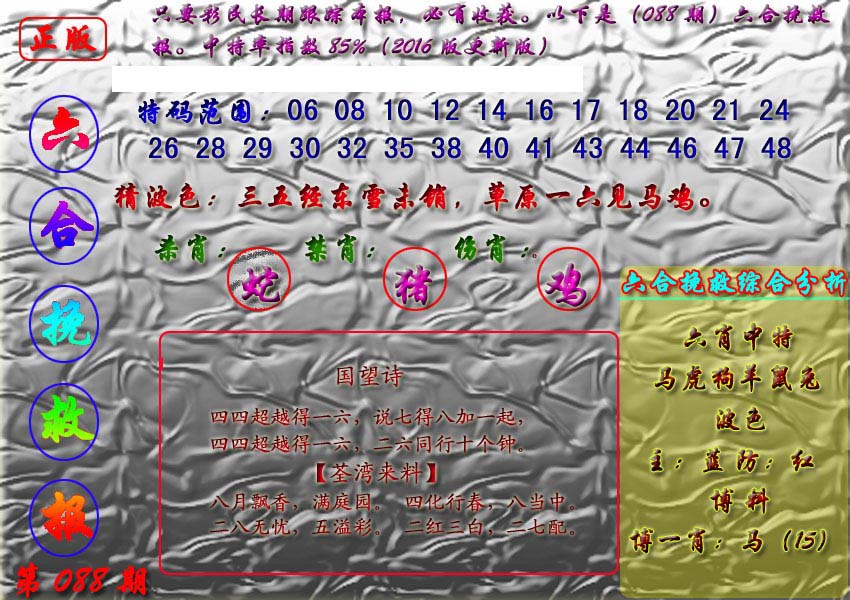 正版
只要彩民长期跟踪本报，必有收获。以下是（088期）六合挽救
报。中特率指数85%（2016版更新版）
六
合
挽
救
报
第088期
特码范围：06 08 10 12 14 16 17 18 20 21 24
26 28 29 30 32 35 38 40 41 43 44 46 47 48
猜波色：三五经东雪未销，草原一六见马鸡。
杀肖： 禁肖： 伤肖：
蛇 猪 鸡
国望诗
四四超越得一六，说七得八加一起，
四四超越得一六，二六同行十个钟。
【荃湾来料】
八月飘香，满庭园。 四化行春，八当中。
二八无忧，五溢彩。 二红三白，二七配。
六合挽救综合分析
六肖中特
马虎狗羊鼠兔
波色
主：蓝防：红
博料
博一肖：马（15）